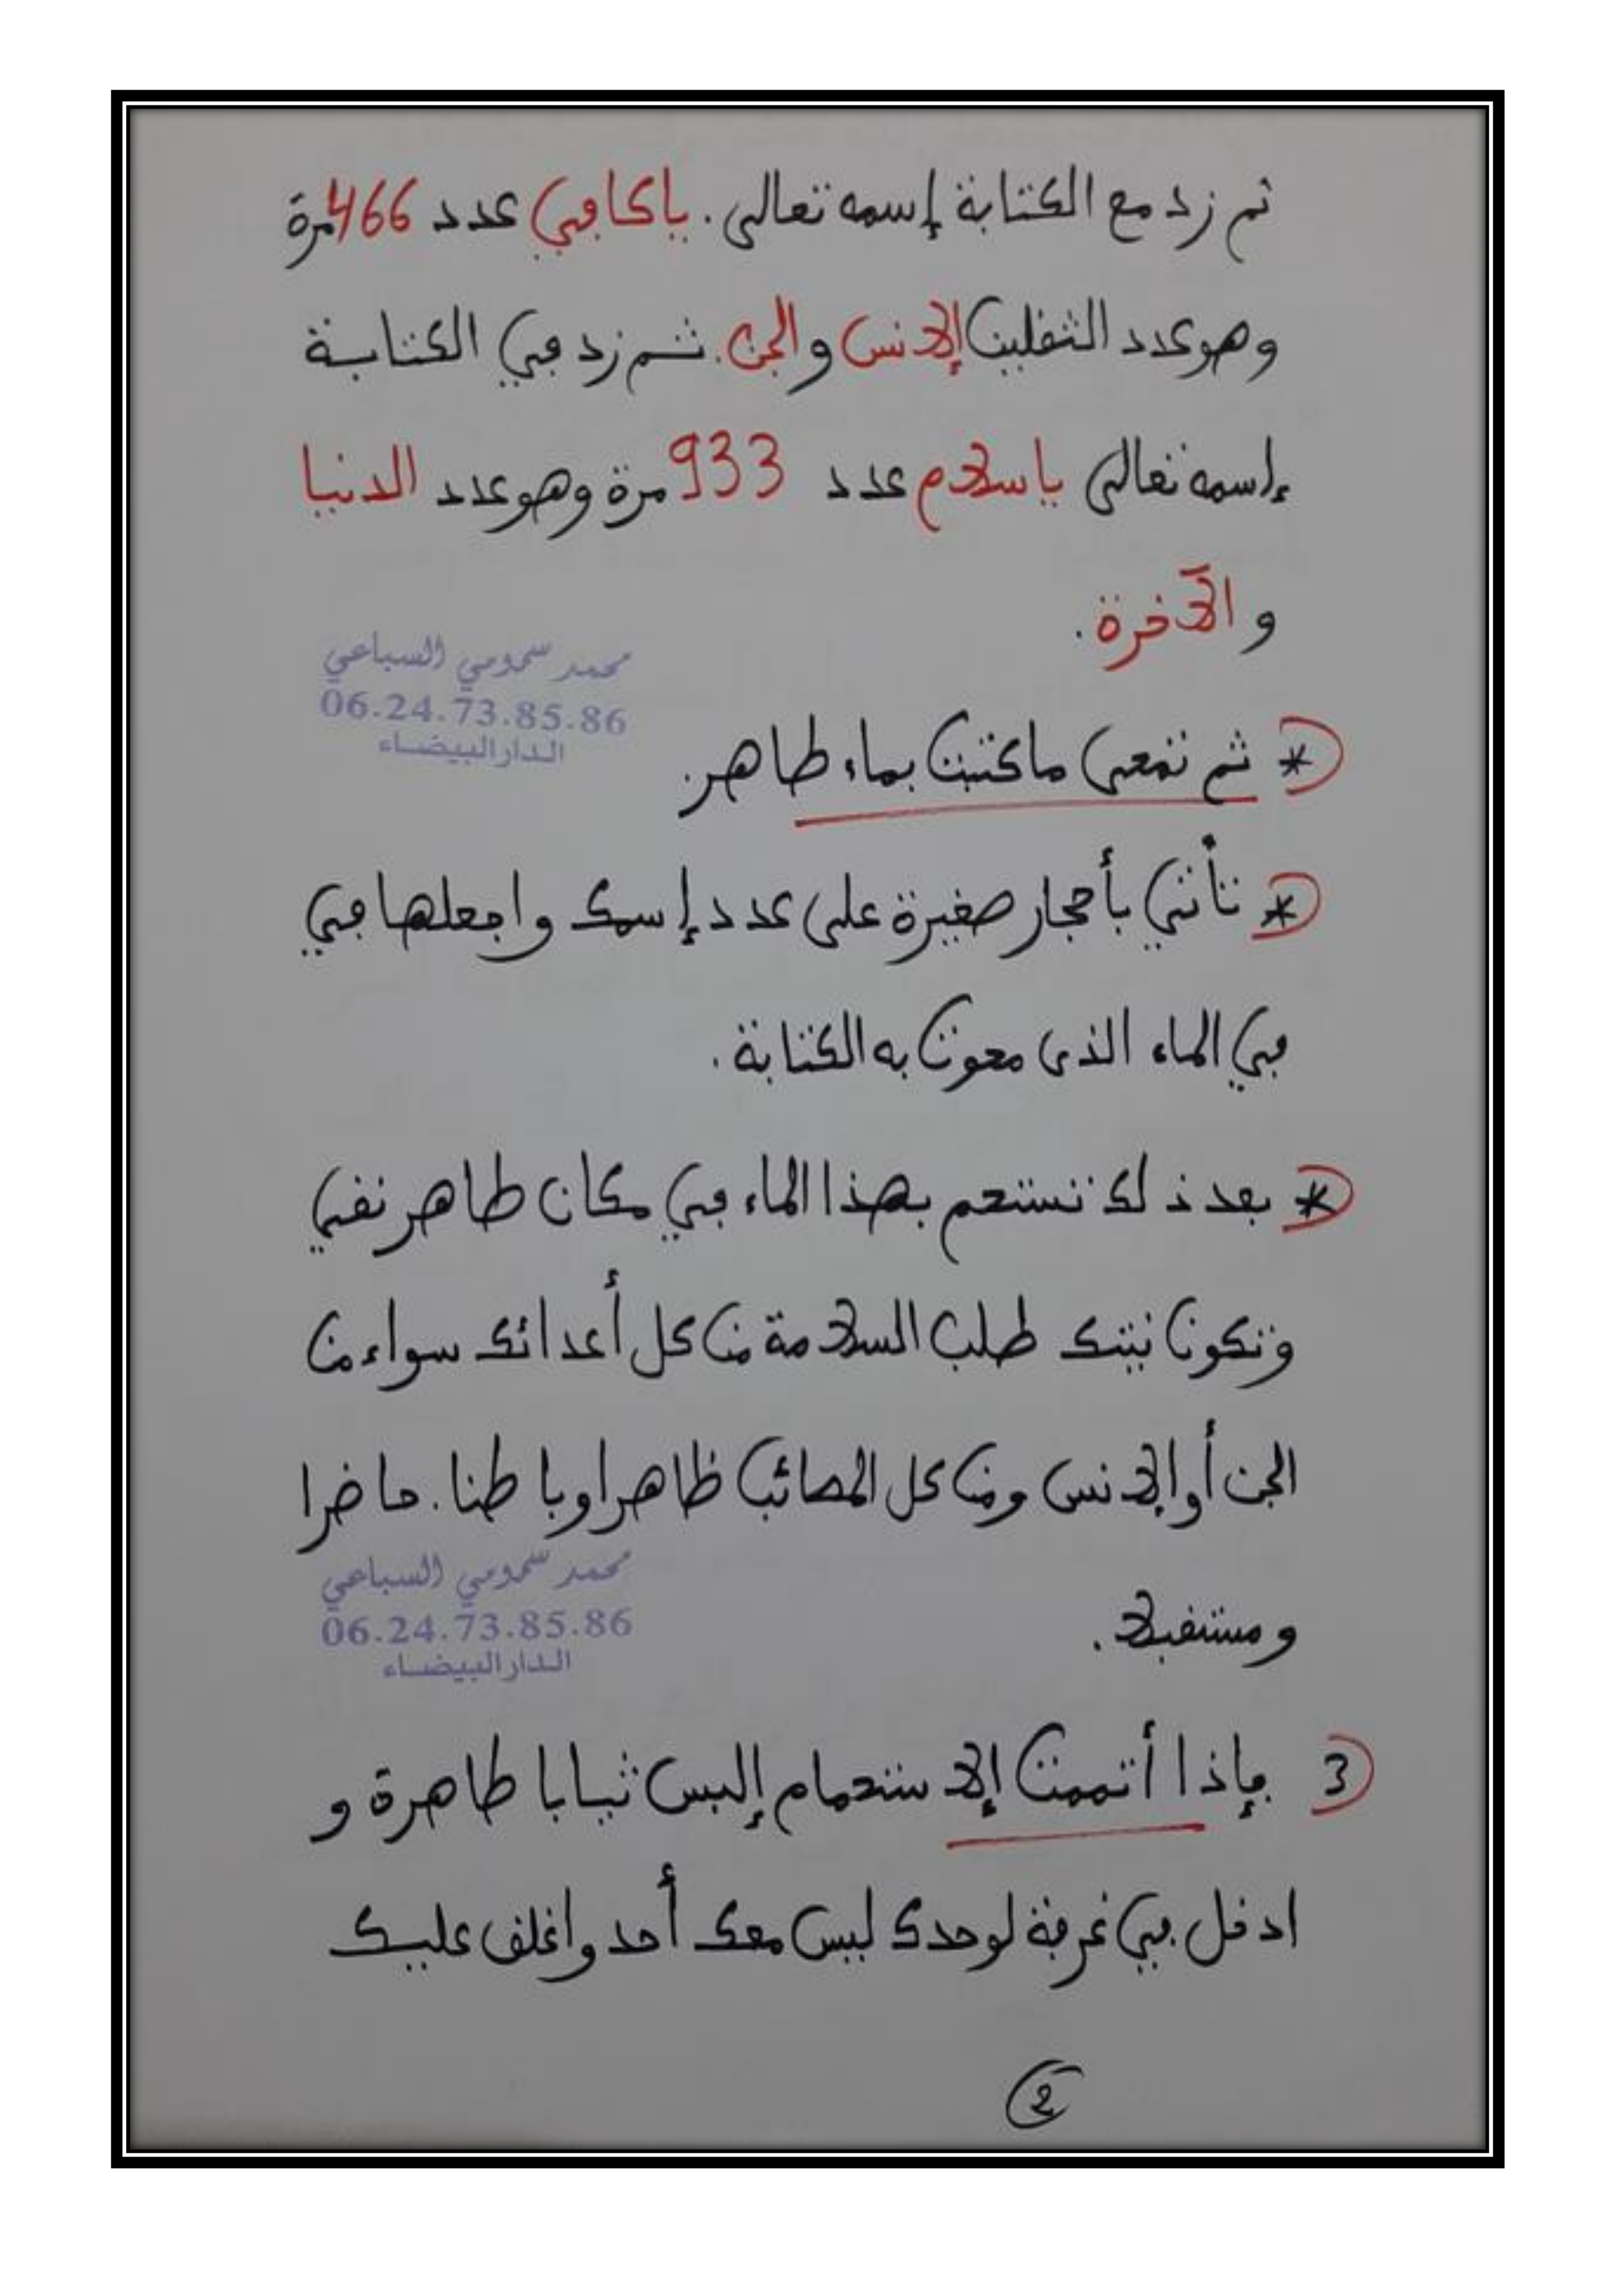 ثم زد مع الكتابة إسمه تعالى . ياكافي عدد 466 مرة
وهو عدد الثقلين الإنس والجن . ثم زد في الكتابة
إسمه تعالى ياسلام عدد 933 مرة وهو عدد الدنيا
و الآخرة .
محمد سمومي السباعي
06.24.73.85.86
الدار البيضاء
* ثم تمعى ماكتبت بماء طاهر .
* تأتي بأحجار صغيرة على عدد إسمك واجعلها في
في الماء الذى معوت به الكتابة .
* بعد ذلك تستحم بهذا الماء في مكان طاهر نقي
وتكون نيتك طلب السلامة من كل أعدائك سواء من
الجن أو الإنس ومن كل المصائب ظاهرا وباطنا . حاضرا
محمد سمومي السباعي
06.24.73.85.86
الدار البيضاء
ومستقبلا .
3 فإذا أتممت الإستحمام إلبس ثيابا طاهرة و
ادخل في غرفة لوحدك ليس معك أحد واغلق عليك
2